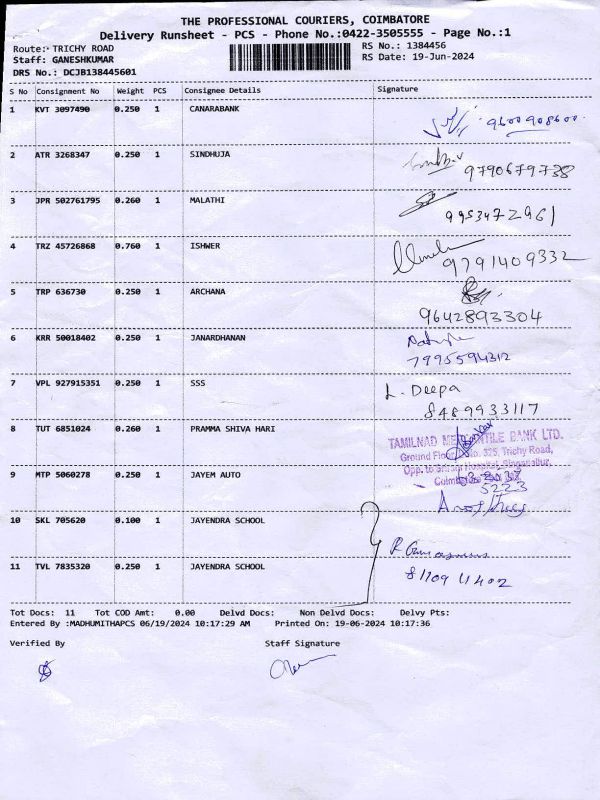 THE PROFESSIONAL COURIERS, COIMBATORE
Delivery Runsheet - PCS - Phone No.:0422-3505555 - Page No.:1
Route: TRICHY ROAD
RS No.: 1384456
Staff: GANESHKUMAR
RS Date: 19-Jun-2024
DRS No.: DCJB138445601
S No Consignment No Weight PCS Consignee Details Signature
1 KVT 3097490 0.250 1 CANARABANK
9600908600
2 ATR 3268347 0.250 1 SINDHUJA
9790679738
3 JPR 502761795 0.260 1 MALATHI
9953472961
4 TRZ 45726868 0.760 1 ISHWER
9791409332
5 TRP 636730 0.250 1 ARCHANA
9642893304
6 KRR 50018402 0.250 1 JANARDHANAN
7995594312
7 VPL 927915351 0.250 1 SSS
L. Deepa
8489933117
8 TUT 6851024 0.260 1 PRAMMA SHIVA HARI
TAMILNAD MERCANTILE BANK LTD.
Ground Floor, No. 325, Trichy Road,
Opp. to Hospital, Singanallur,
9 MTP 5060278 0.250 1 JAYEM AUTO
5223
10 SKL 705620 0.100 1 JAYENDRA SCHOOL
11 TVL 7835320 0.250 1 JAYENDRA SCHOOL
Tot Docs: 11 Tot COD Amt: 0.00 Delvd Docs: Non Delvd Docs: Delvy Pts:
Entered By :MADHUMITHAPCS 06/19/2024 10:17:29 AM Printed On: 19-06-2024 10:17:36
Verified By Staff Signature